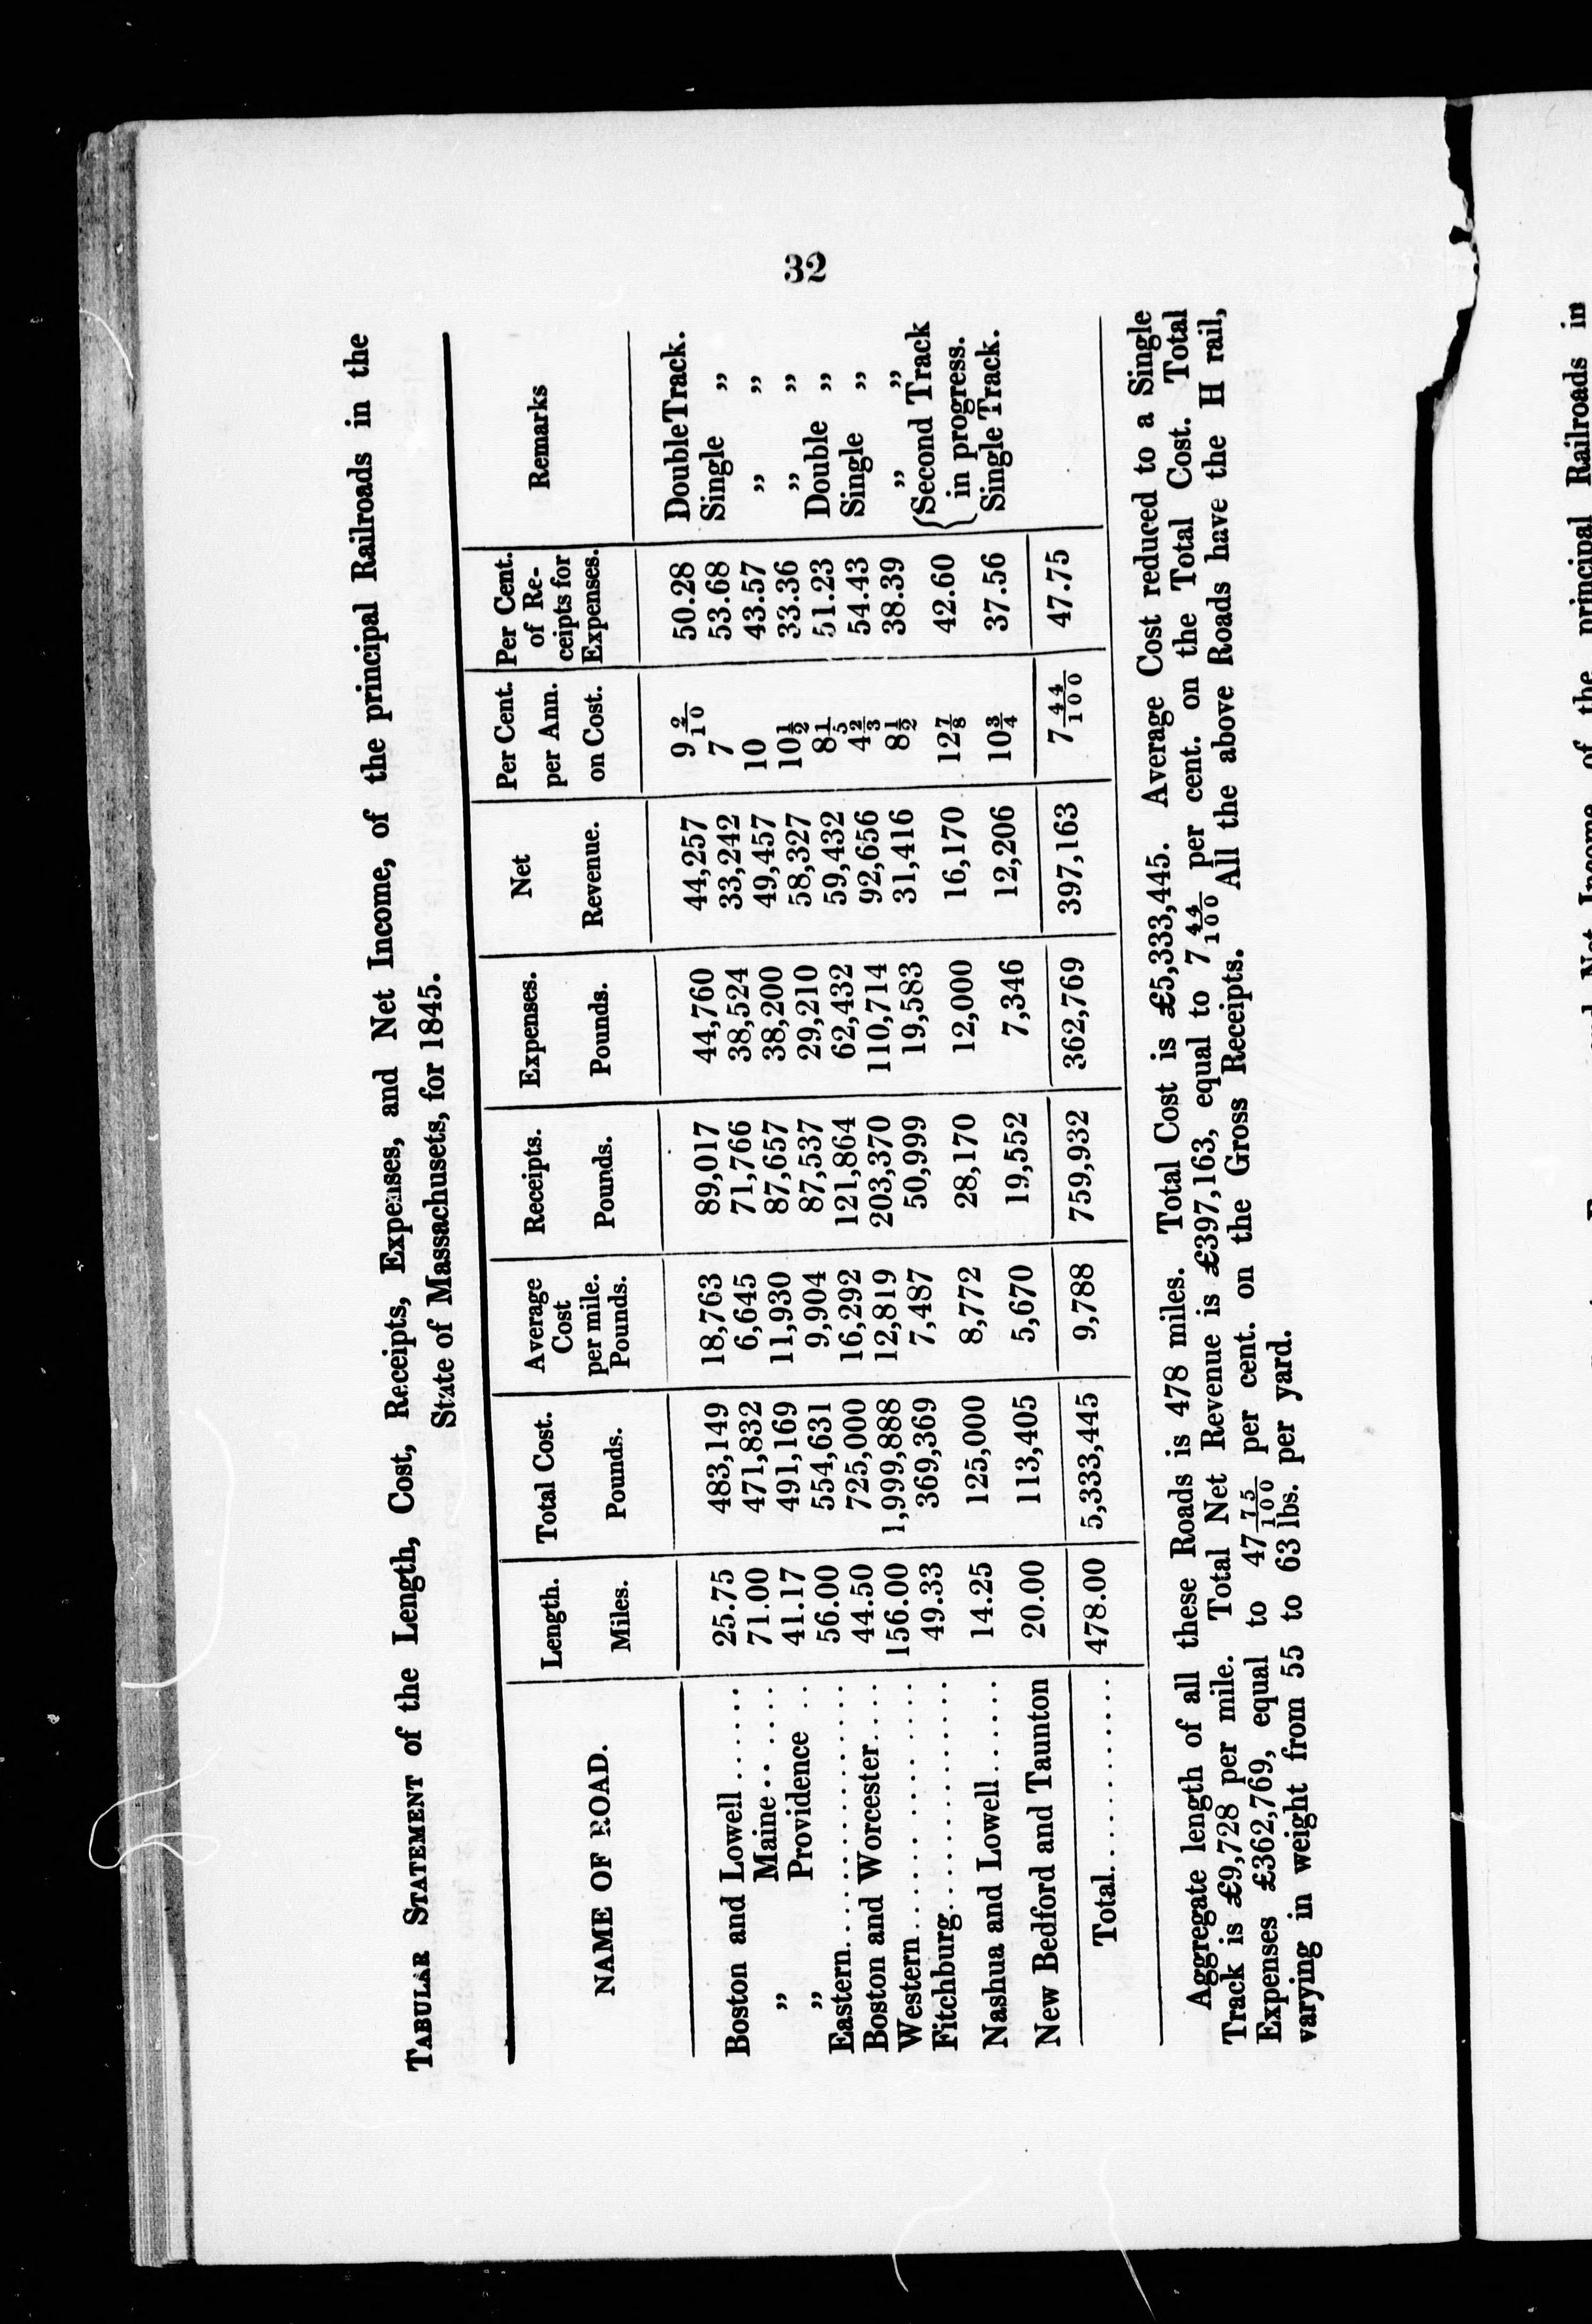 32
TABULAR STATEMENT of the Length, Cost, Receipts, Expenses, and Net Income, of the principal Railroads in the
State of Massachusets, for 1845.
NAME OF ROAD. Length. Miles. Total Cost. Pounds. Average Cost per mile. Pounds. Receipts. Pounds. Expenses. Pounds. Net Revenue. Per Cent. per Ann. on Cost. Per Cent. of Re-ceipts for Expenses. Remarks
Boston and Lowell...... 25.75 483,149 18,763 89,017 44,760 44,257 9 2/10 50.28 Double Track.
„ Maine...... 71.00 471,832 6,645 71,766 38,524 33,242 7 53.68 Single „
„ Providence .. 41.17 491,169 11,930 87,657 38,200 49,457 10 43.57 „ „
Eastern............ 56.00 554,631 9,904 87,537 29,210 58,327 10½ 33.36 „ „
Boston and Worcester.... 44.50 725,000 16,292 121,864 62,432 59,432 8 1/5 51.23 Double „
Western............ 156.00 1,999,888 12,819 203,370 110,714 92,656 4⅔ 54.43 Single „
Fitchburg............ 49.33 369,369 7,487 50,999 19,583 31,416 8½ 38.39 „ „
Nashua and Lowell...... 14.25 125,000 8,772 28,170 12,000 16,170 12⅞ 42.60 {Second Track in progress.
New Bedford and Taunton 20.00 113,405 5,670 19,552 7,346 12,206 10¾ 37.56 Single Track.
Total............ 478.00 5,333,445 9,788 759,932 362,769 397,163 7 44/100 47.75
Aggregate length of all these Roads is 478 miles. Total Cost is £5,333,445. Average Cost reduced to a Single
Track is £9,728 per mile. Total Net Revenue is £397,163, equal to 7 44/100 per cent. on the Total Cost. Total
Expenses £362,769, equal to 47 75/100 per cent. on the Gross Receipts. All the above Roads have the H rail,
varying in weight from 55 to 63 lbs. per yard.
Net Income of the principal Railroads in